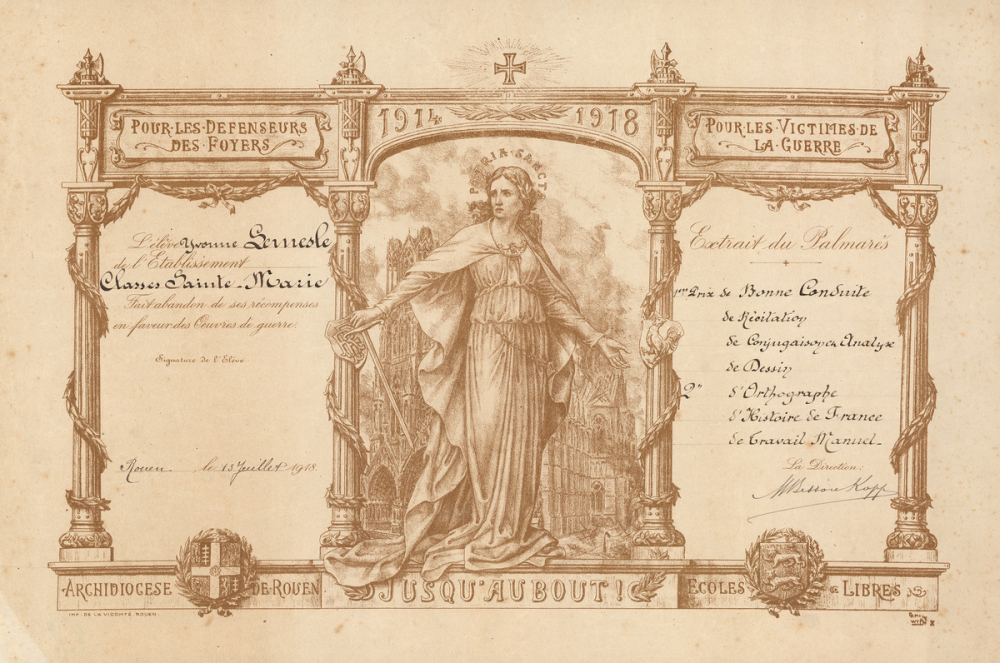 1914 1918
POUR·LES·DEFENSEURS
DES·FOYERS
POUR·LES·VICTIMES·DE
·LA·GUERRE·
PATRIA·SANCT
L'élève Yvonne Lemesle
de l'Etablissement
Classes Sainte-Marie
Fait abandon de ses récompenses
en faveur des Oeuvres de guerre.
Signature de l'Elève
Rouen le 13 Juillet 1918.
Extrait du Palmarès
1er Prix de Bonne Conduite
de Récitation
de Conjugaison et Analyse
de Dessin
2e d'Orthographe
d'Histoire de France
de Travail Manuel
La Direction:
ARCHIDIOCESE DE·ROUEN
JUSQU'AU BOUT!
ECOLES LIBRES
IMP. DE LA VICOMTÉ. ROUEN.